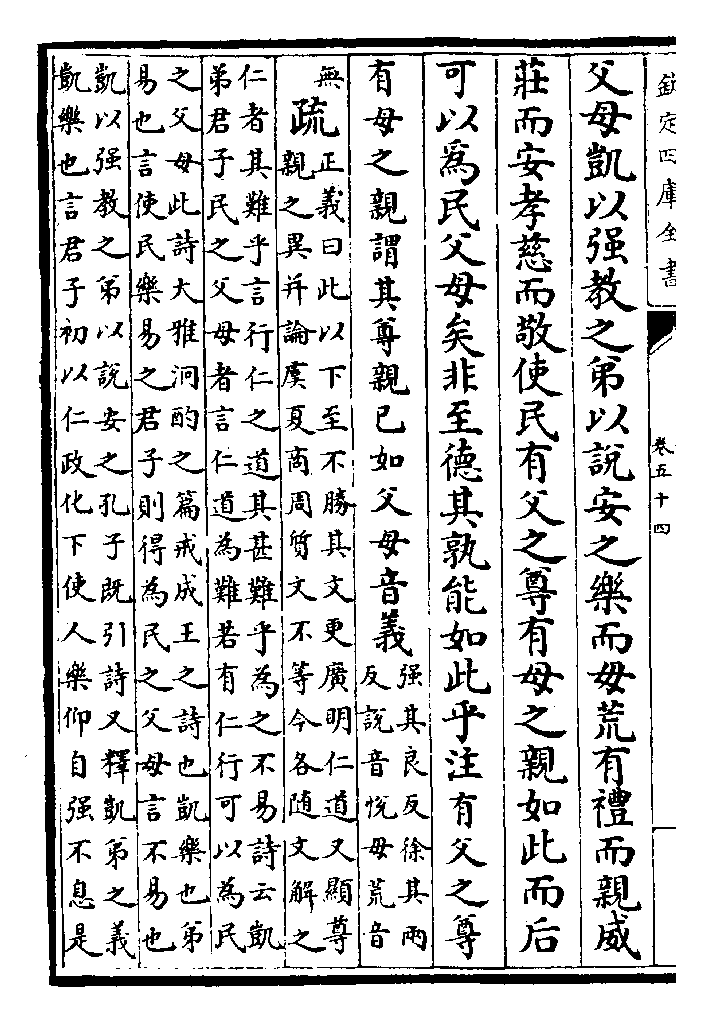 欽定四庫全書
卷五十四
父母凱以强教之弟以說安之樂而毋荒有禮而親威
莊而安孝慈而敬使民有父之尊有母之親如此而后
可以爲民父母矣非至德其孰能如此乎注有父之尊
有母之親謂其尊親已如父母音義
强其良反徐其兩
反說音悅毋荒音
無
疏
正義曰此以下至不勝其文更廣明仁道又顯尊
親之異幷論虞夏商周質文不等今各随文解之
仁者其難乎言行仁之道其甚難乎為之不易詩云凱
弟君子民之父母者言仁道為難若有仁行可以為民
之父母此詩大雅泂酌之篇戒成王之詩也凱樂也弟
易也言使民樂易之君子則得為民之父母言不易也
凱以强教之弟以說安之孔子既引詩又釋凱弟之義
凱樂也言君子初以仁政化下使人樂仰自强不息是